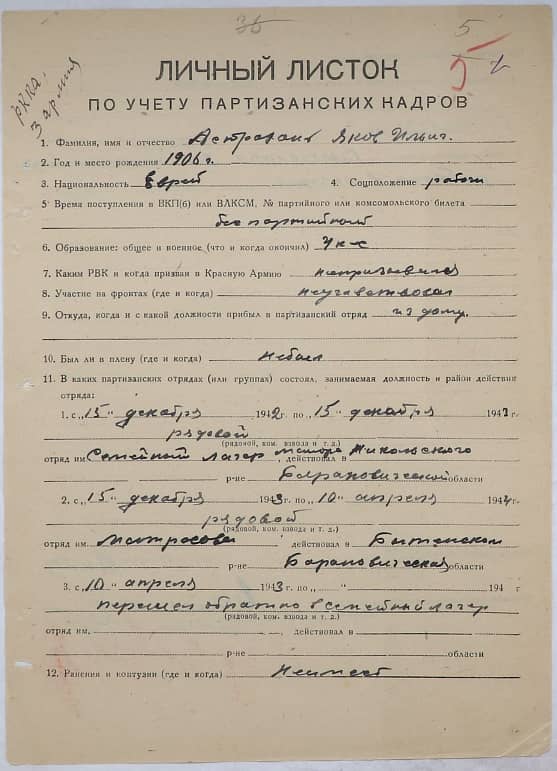 36 5
5
РККА,
3 армия
ЛИЧНЫЙ ЛИСТОК
ПО УЧЕТУ ПАРТИЗАНСКИХ КАДРОВ
1. Фамилия, имя и отчество Яков Ильич.
2. Год и место рождения 1906 г.
3. Национальность Еврей 4. Соцположение рабочи
5 Время поступления в ВКП(б) или ВЛКСМ, № партийного или комсомольского билета
безпартийной
6. Образование: общее и военное (что и когда окончил) 4 к-с
7. Каким РВК и когда призван в Красную Армию непризывался
8. Участие на фронтах (где и когда) неучаствовал
9. Откуда, когда и с какой должности прибыл в партизанский отряд из дому.
10. Был ли в плену (где и когда) небыл
11. В каких партизанских отрядах (или группах) состоял, занимаемая должность и район действия
отряда:
1. с „15" декабря 1942 г. по „15" декабря 194 г.
рядовой
(рядовой, ком. взвода и т. д.)
отряд им. Семейный лагер майора Никольского, действовал в
р-не Барановической области
2. с „15" декабря 1943 г. по „10" апреля 1944 г.
рядовой
(рядовой, ком. взвода и т. д.)
отряд им. Матросова действовал в Бытенском
р-не Барановическая области
3. с „10" апреля 1943 г. по „ " 194 г
перешел обратно в семейный лагер
(рядовой, ком. взвода и т. д.)
отряд им. , действовал в
р-не области
12. Ранения и контузии (где и когда) Неимеет